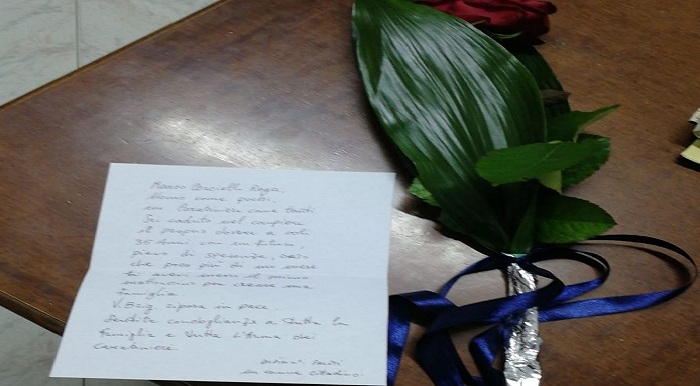 Mario Cerciello Rega,
Uomo come pochi,
un Carabiniere come tanti
Sei caduto nel compiere
il proprio dovere a soli
35 Anni con un futuro,
pieno di speranze,
che poco più di un mese
fa avevi messo il primo
mattoncino per creare una
famiglia.
V.Brig. riposa in pace.
Sentite condoglianze a tutta la
famiglia e tutta l'Arma dei
Carabinieri
un comune cittadino.